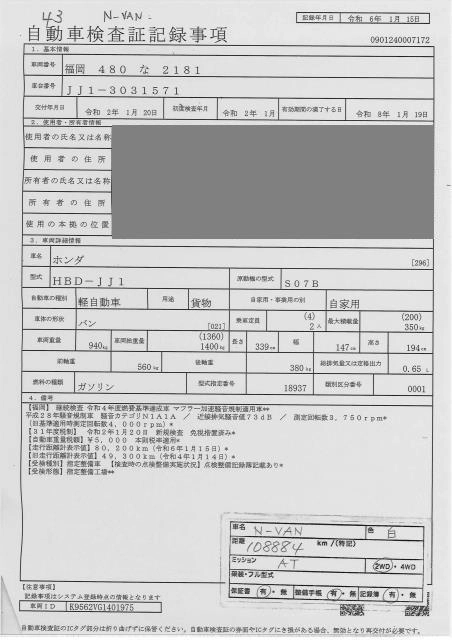 43 N-VAN
記録年月日 令和 6年 1月 15日
自動車検査証記録事項
0901240007172
1. 基本情報
車両番号 福岡 480 な 2181
車台番号 JJ1-3031571
交付年月日 令和 2年 1月 20日 初度検査年月 令和 2年 1月 有効期間の満了する日 令和 8年 1月 19日
2. 使用者・所有者情報
使用者の氏名又は名称
使用者の住所
所有者の氏名又は名称
所有者の住所
使用の本拠の位置
3. 車両詳細情報
車名 ホンダ [296]
型式 HBD-JJ1 原動機の型式 S07B
自動車の種別 軽自動車 用途 貨物 自家用・事業用の別 自家用
車体の形状 バン [021] 乗車定員 (4) 2人 最大積載量 (200) 350kg
車両重量 940kg 車両総重量 (1360) 1400kg 長さ 339cm 幅 147cm 高さ 194cm
前軸重 560kg 後軸重 380kg 総排気量又は定格出力 0.65 L
燃料の種類 ガソリン 型式指定番号 18937 類別区分番号 0001
4. 備考
【福岡】 継続検査 令和4年度燃費基準達成車 マフラー加速騒音規制適用車**
平成28年騒音規制車 騒音カテゴリN1A1A / 近接排気騒音値73dB / 測定回転数3,750rpm*
(旧基準適用時測定回転数4,000rpm)*
【31年度税制】 令和2年1月20日 新規検査 免税措置済み*
【自動車重量税額】¥5,000 本則税率適用*
【走行距離計表示値】80,200km(令和6年1月15日)*
【旧走行距離計表示値】49,300km(令和4年1月14日)*
【受検種別】指定整備車 【検査時の点検整備実施状況】点検整備記録簿記載あり*
【受検形態】指定整備工場**
車名 N-VAN 色 白
距離 108884 km/(特記)
ミッション AT 2WD・4WD
架装・フル型式
保証書 有・無 整備手帳 有・無 記録簿 有・無
【注意事項】
記録事項はシステム登録時点の情報となります
車両ID K9562VG1401975
自動車検査証のICタグ部分は折り曲げずに保管ください。自動車検査証の券面やICタグにき損がある場合、無効となり再交付が必要です。